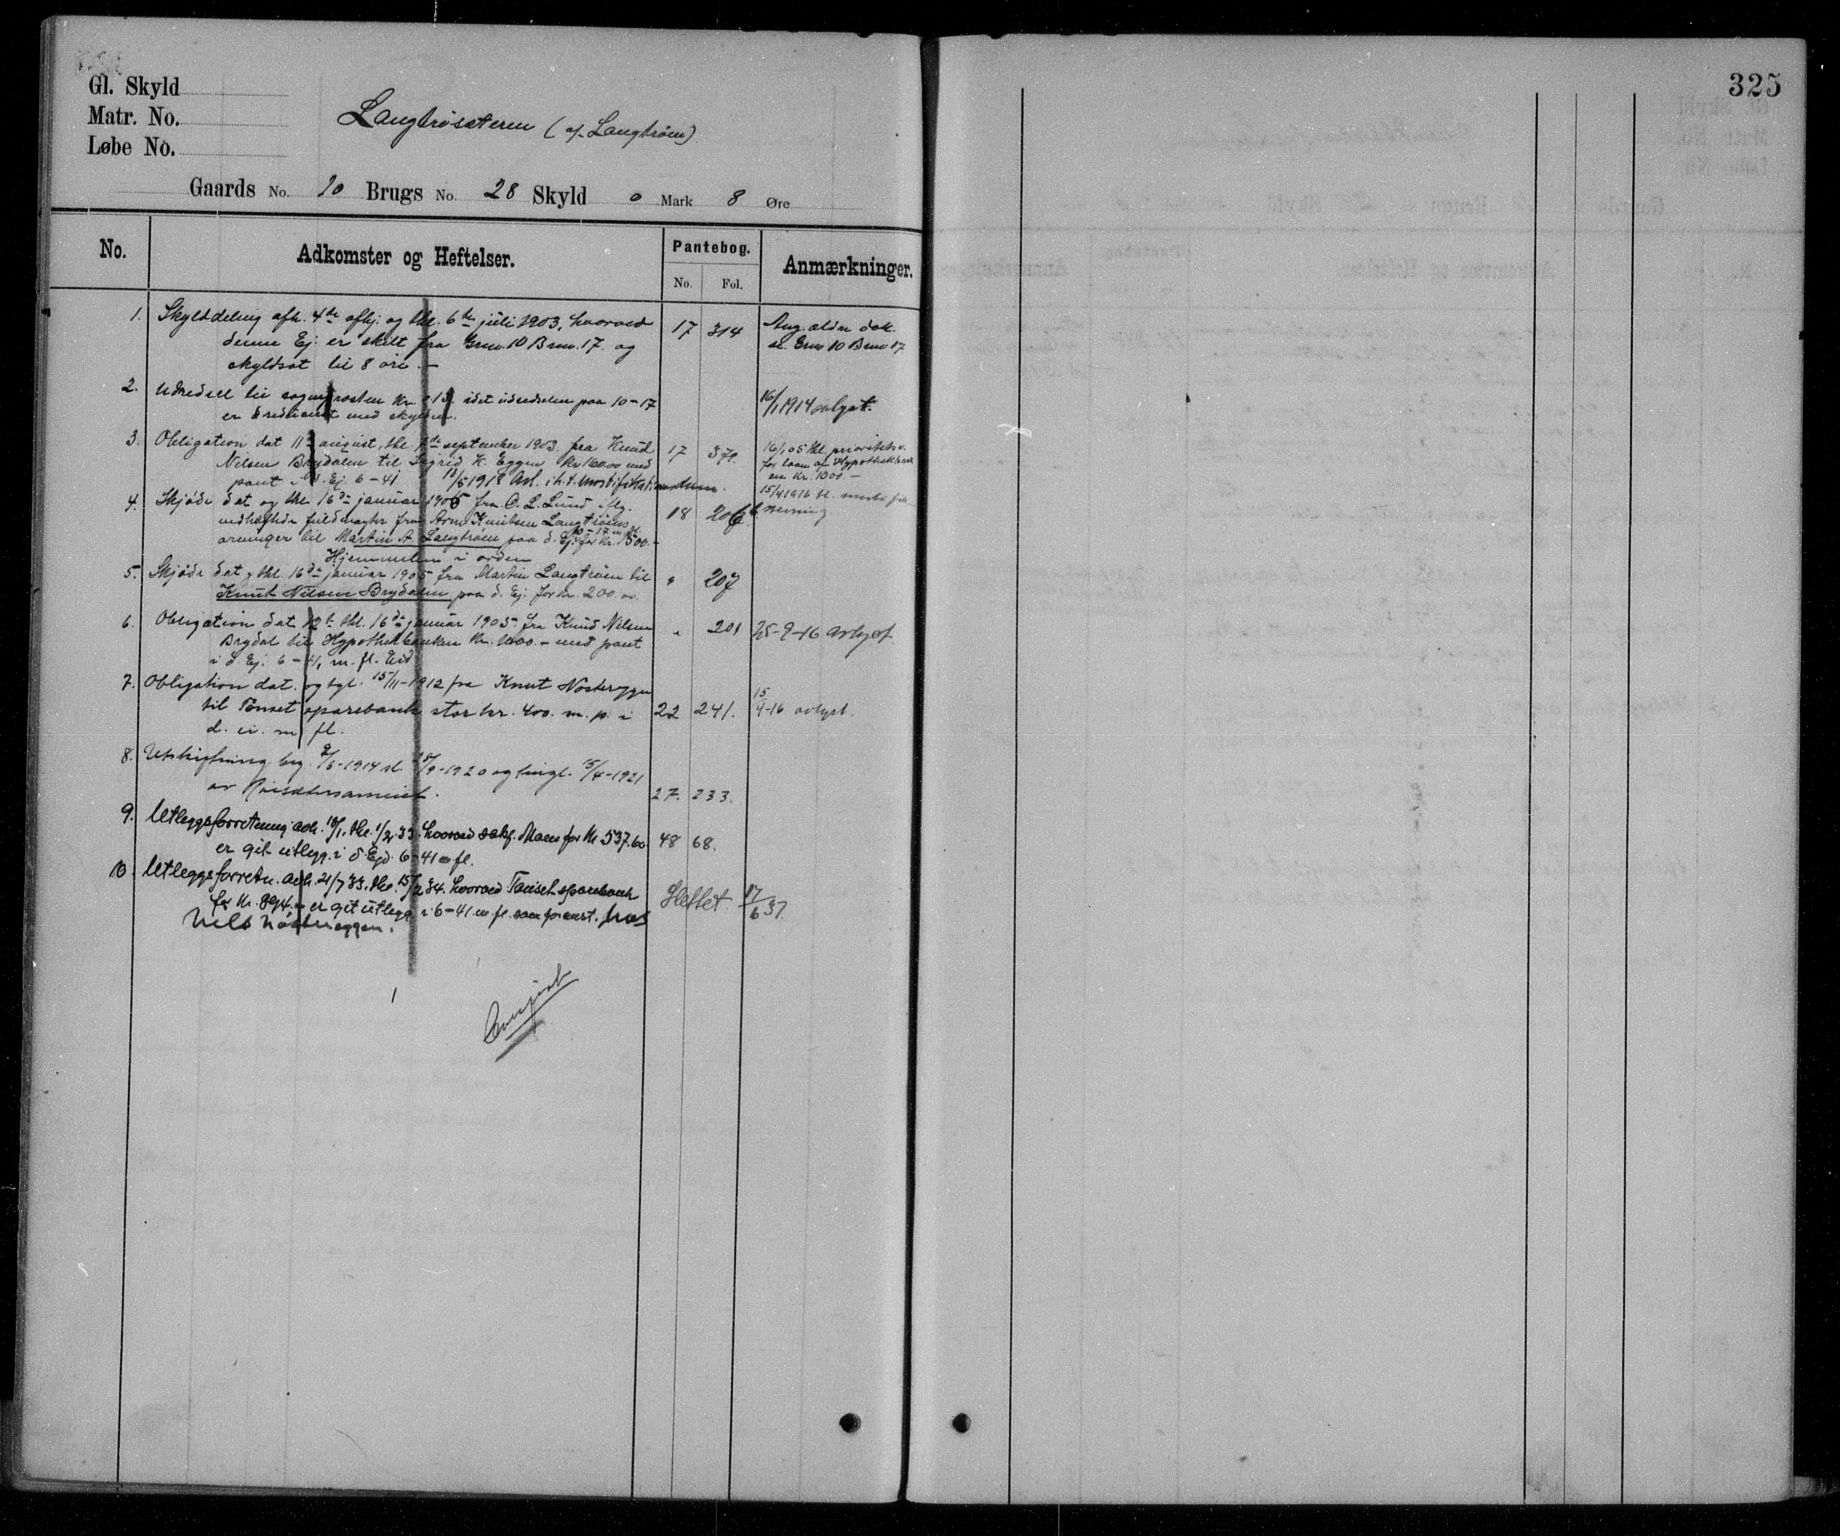 325
Gl. Skyld
Matr. No.
Løbe No.
Langtrøsæteren (af Langtrøen)
Gaards No. 10 Brugs No. 28 Skyld 0 Mark 8 Øre
No. Adkomster og Heftelser. Pantebog. Anmærkninger.
No. Fol.
1. Skylddeling afh. 4de afhj. og thl. 6te juli 1903, hvorved 17 314 Ang. ældre dok.
denne Ej. er skilt fra Gno. 10 Bno. 17 og se Gno 10 Bno 17
skyldsat til 8 øre. —
2. Udredsel til kr idet udredselen paa 10-17 16/1 1914 avlyst.
er med skylden.
3. Obligation dat 11te august, thl. 7de september 1903 fra Knud 17 379. 16/1 05 thl. prioritets
Nilsen Brydalen til Sigrid K. Eggen kr 1000.00 med for laan af Hypothekbank
pant i d. Ej. 6-41 13/5 1918 Avl. i h. t. mortifikationsdom. en kr. 1000 —
15/4 1916 tl.
4. Skjøde dat og thl. 16de januar 1905 fra O. L. Lund iflg. 18 206 stevning
vedhæftede fuldmagter fra Arne Knutsen Langtrøens
arvinger til Martin A. Langtrøen paa d. Ej. 10-17 m. fl. for kr. 1500.-
Hjemmelen i orden
5. Skjøde dat og thl. 16de januar 1905 fra Martin Langtrøen til " 207
Knut Nilsen Brydalen paa d. Ej. for kr. 200.00
6. Obligation dat 12te thl. 16de januar 1905 fra Knud Nilsen " 201 25-9-16 avlyst.
Brydal til Hypothekbanken kr. 1000.- med pant
i d. Ej. 6-41, m. fl. Eied
7. Obligation dat. og tgl. 15/11-1912 fra Knut Nosterygen
til Tønset sparebank stor kr. 400. m. p. i 22 241. 15/4-16 avlyst.
d. ei. m. fl.
8. Utskiftning beg. 2/6-1914 sl. 15/9-1920 og tingl. 15/4-1921
av Røisætersameiet. 27. 233.
9. Utleggsforretning avh. 18/1, thl. 1/2 33, hvorved Moen for kr 537.60 48 68.
er git utlegg i d. Ejd. 6-41 m fl.
10. Utleggsforretn. avh. 21/7 33, thl. 15/2 34 hvorved Tønset sparebank Slettet 17/6 37.
for kr. 894.- er git utlegg i 6-41 m fl. som forannt. hos
Nils Nøsteræggen.